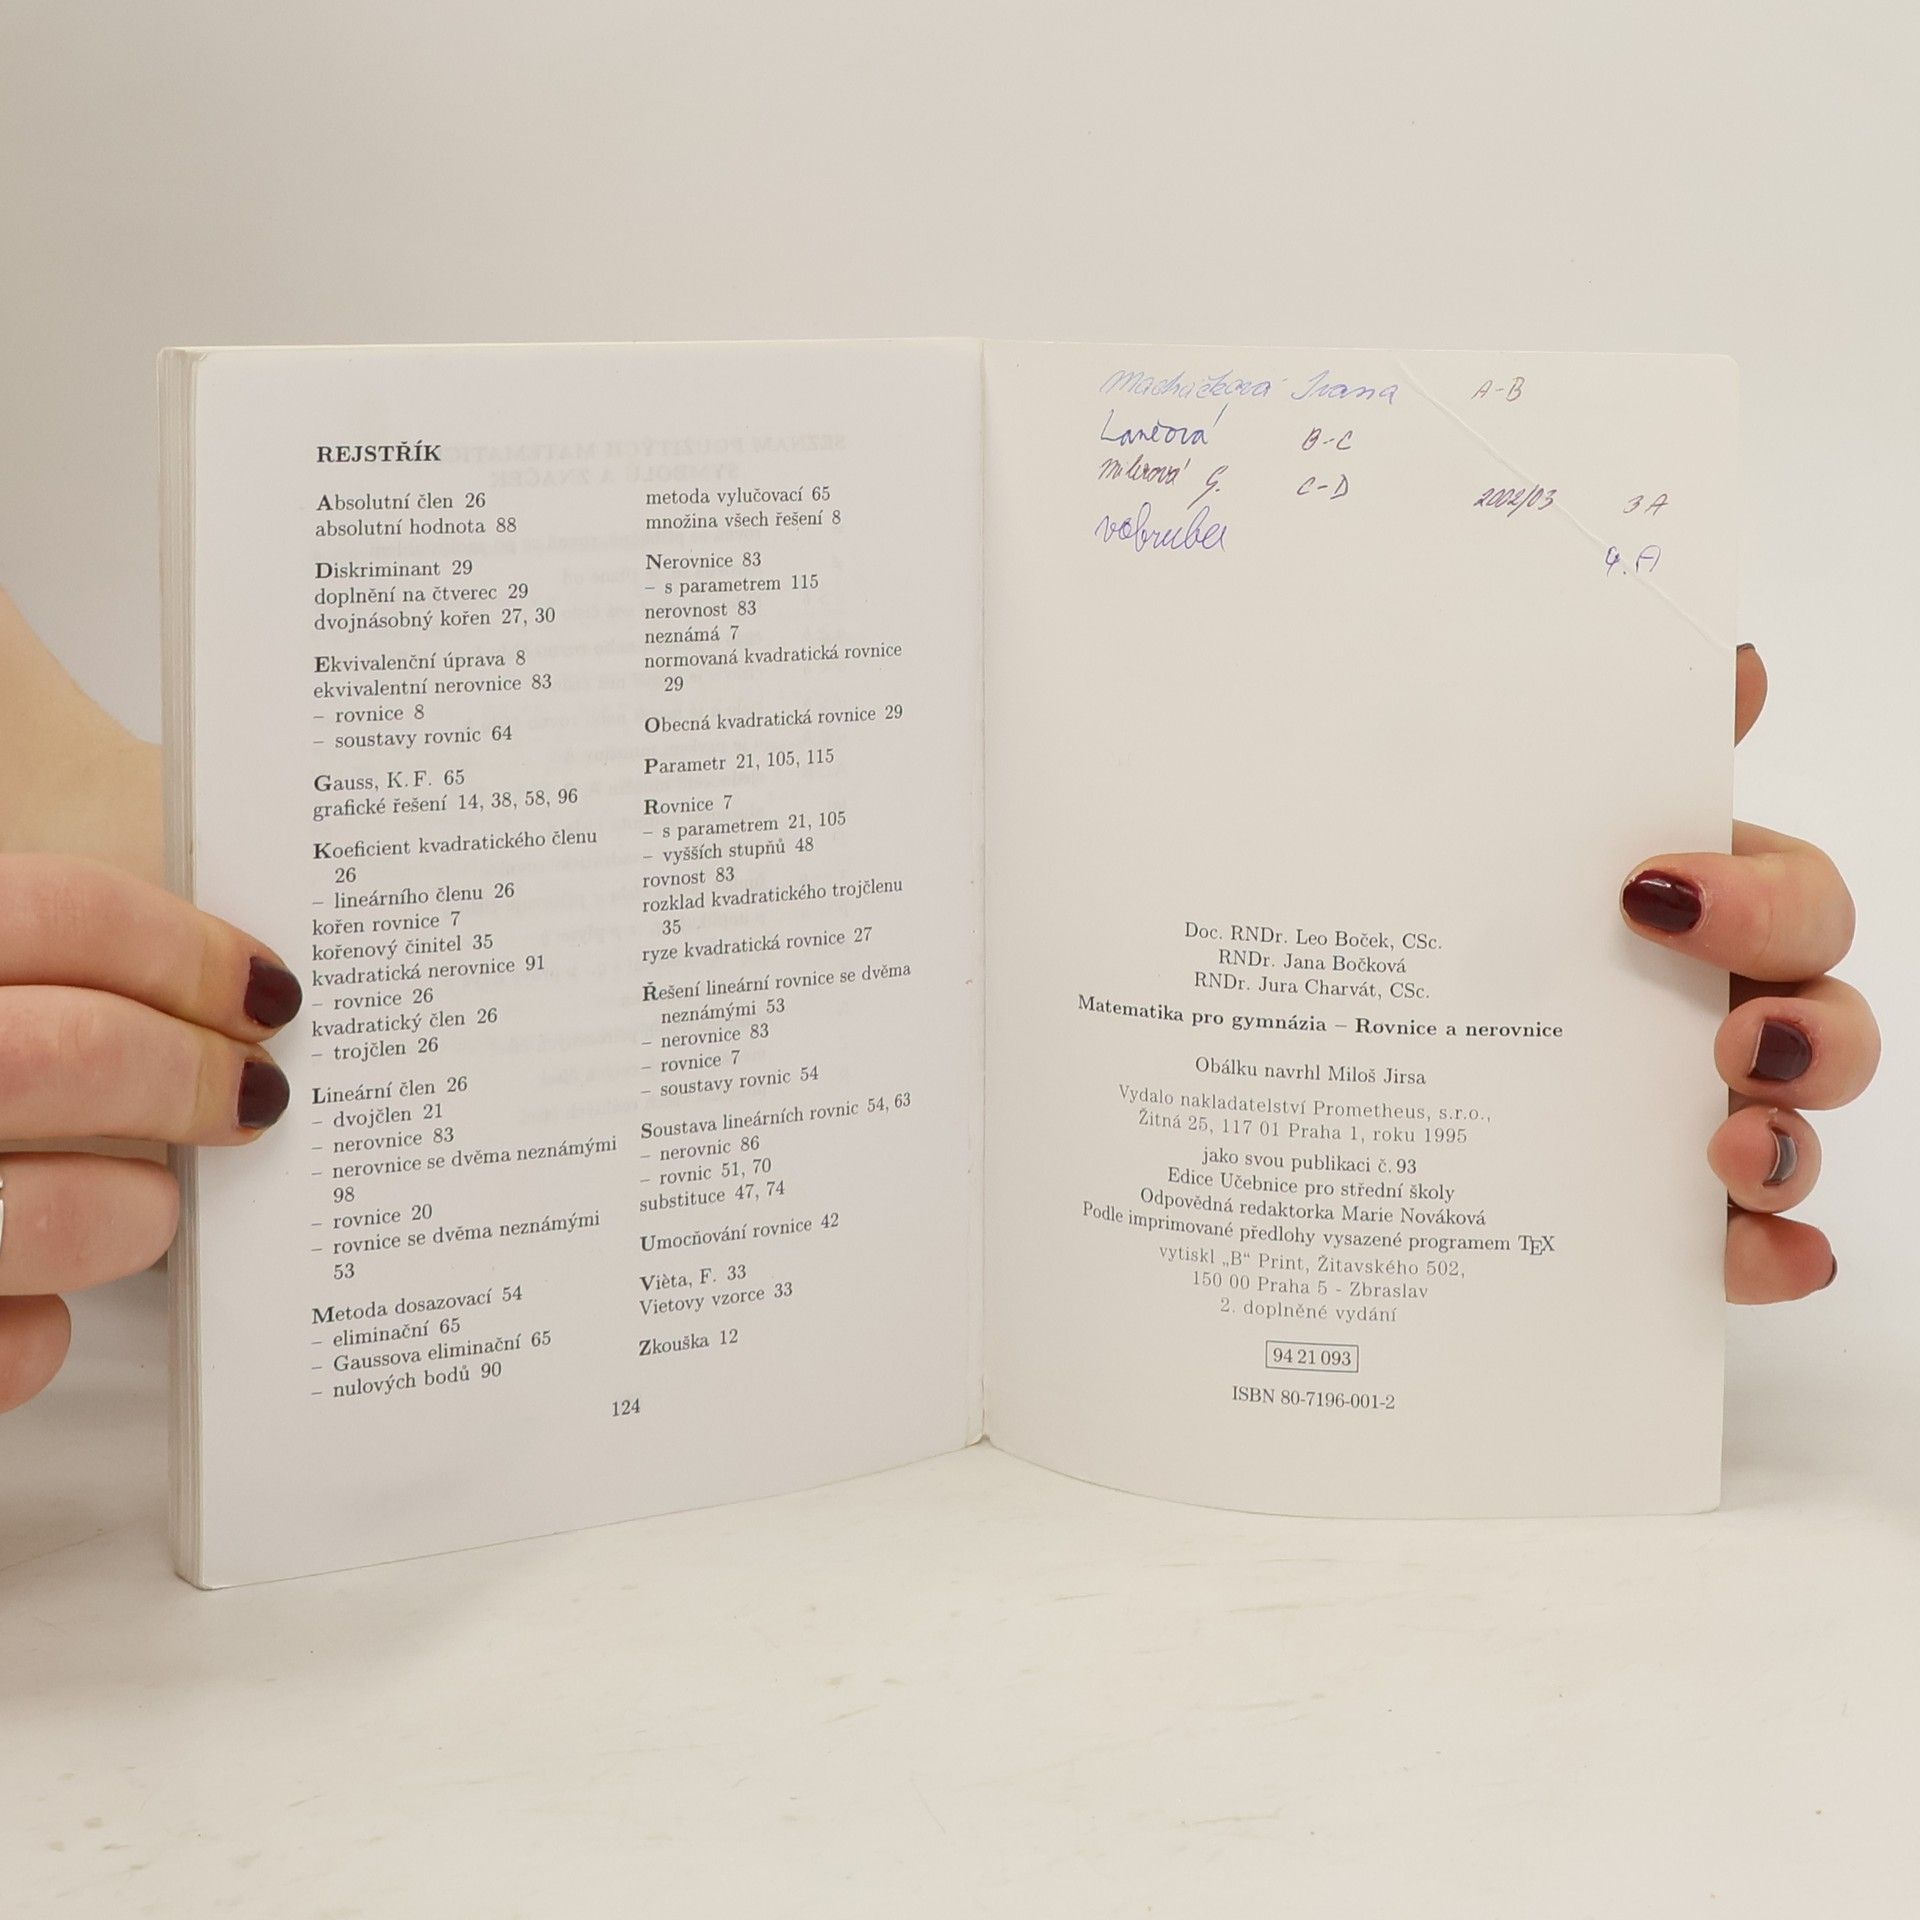 REJSTŘÍK
Absolutní člen 26
absolutní hodnota 88
Diskriminant 29
doplnění na čtverec 29
dvojnásobný kořen 27, 30
Ekvivalenční úprava 8
ekvivalentní nerovnice 83
– rovnice 8
– soustavy rovnic 64
Gauss, K. F. 65
grafické řešení 14, 38, 58, 96
Koeficient kvadratického členu
26
– lineárního členu 26
kořen rovnice 7
kořenový činitel 35
kvadratická nerovnice 91
– rovnice 26
kvadratický člen 26
– trojčlen 26
Lineární člen 26
– dvojčlen 21
– nerovnice 83
– nerovnice se dvěma neznámými
98
– rovnice 20
– rovnice se dvěma neznámými
53
Metoda dosazovací 54
– eliminační 65
– Gaussova eliminační 65
– nulových bodů 90
metoda vylučovací 65
množina všech řešení 8
Nerovnice 83
– s parametrem 115
nerovnost 83
neznámá 7
normovaná kvadratická rovnice
29
Obecná kvadratická rovnice 29
Parametr 21, 105, 115
Rovnice 7
– s parametrem 21, 105
– vyšších stupňů 48
rovnost 83
rozklad kvadratického trojčlenu
35
ryze kvadratická rovnice 27
Řešení lineární rovnice se dvěma
neznámými 53
– nerovnice 83
– rovnice 7
– soustavy rovnic 54
Soustava lineárních rovnic 54, 63
– nerovnic 86
– rovnic 51, 70
substituce 47, 74
Umocňování rovnice 42
Viète, F. 33
Vietovy vzorce 33
Zkouška 12
124
Macháčková Ivana A-B
Lančová B-C
Milerová G. C-D 2002/03 3A
Vobruba 4.A
Doc. RNDr. Leo Boček, CSc.
RNDr. Jana Bočková
RNDr. Jura Charvát, CSc.
Matematika pro gymnázia – Rovnice a nerovnice
Obálku navrhl Miloš Jirsa
Vydalo nakladatelství Prometheus, s.r.o.,
Žitná 25, 117 01 Praha 1, roku 1995
jako svou publikaci č. 93
Edice Učebnice pro střední školy
Odpovědná redaktorka Marie Nováková
Podle imprimované předlohy vysazené programem TEX
vytiskl „B“ Print, Žitavského 502,
150 00 Praha 5 - Zbraslav
2. doplněné vydání
94 21 093
ISBN 80-7196-001-2